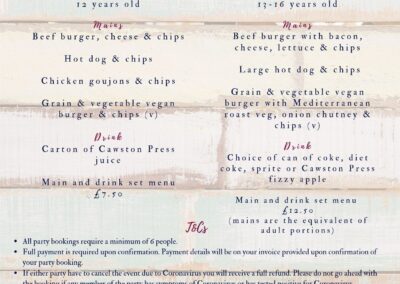 12 years old
Mains
Beef burger, cheese & chips
Hot dog & chips
Chicken goujons & chips
Grain & vegetable vegan
burger & chips (v)
Drink
Carton of Cawston Press
juice
Main and drink set menu
£7.50
13-16 years old
Mains
Beef burger with bacon,
cheese, lettuce & chips
Large hot dog & chips
Grain & vegetable vegan
burger with Mediterranean
roast veg, onion chutney &
chips (v)
Drink
Choice of can of coke, diet
coke, sprite or Cawston Press
fizzy apple
Main and drink set menu
£12.50
(mains are the equivalent of
adult portions)
T&Cs
• All party bookings require a minimum of 6 people.
• Full payment is required upon confirmation. Payment details will be on your invoice provided upon confirmation of
your party booking.
• If either party have to cancel the event due to Coronavirus you will receive a full refund. Please do not go ahead with
the booking if any member of the party has symptoms of Coronavirus or has tested positive for Coronavirus